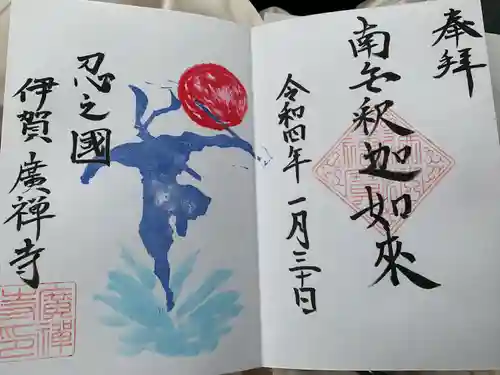 奉拝
南無釈迦如來
令和四年 一月三十日
忍之國
伊賀 廣禅寺
廣禅
寺印